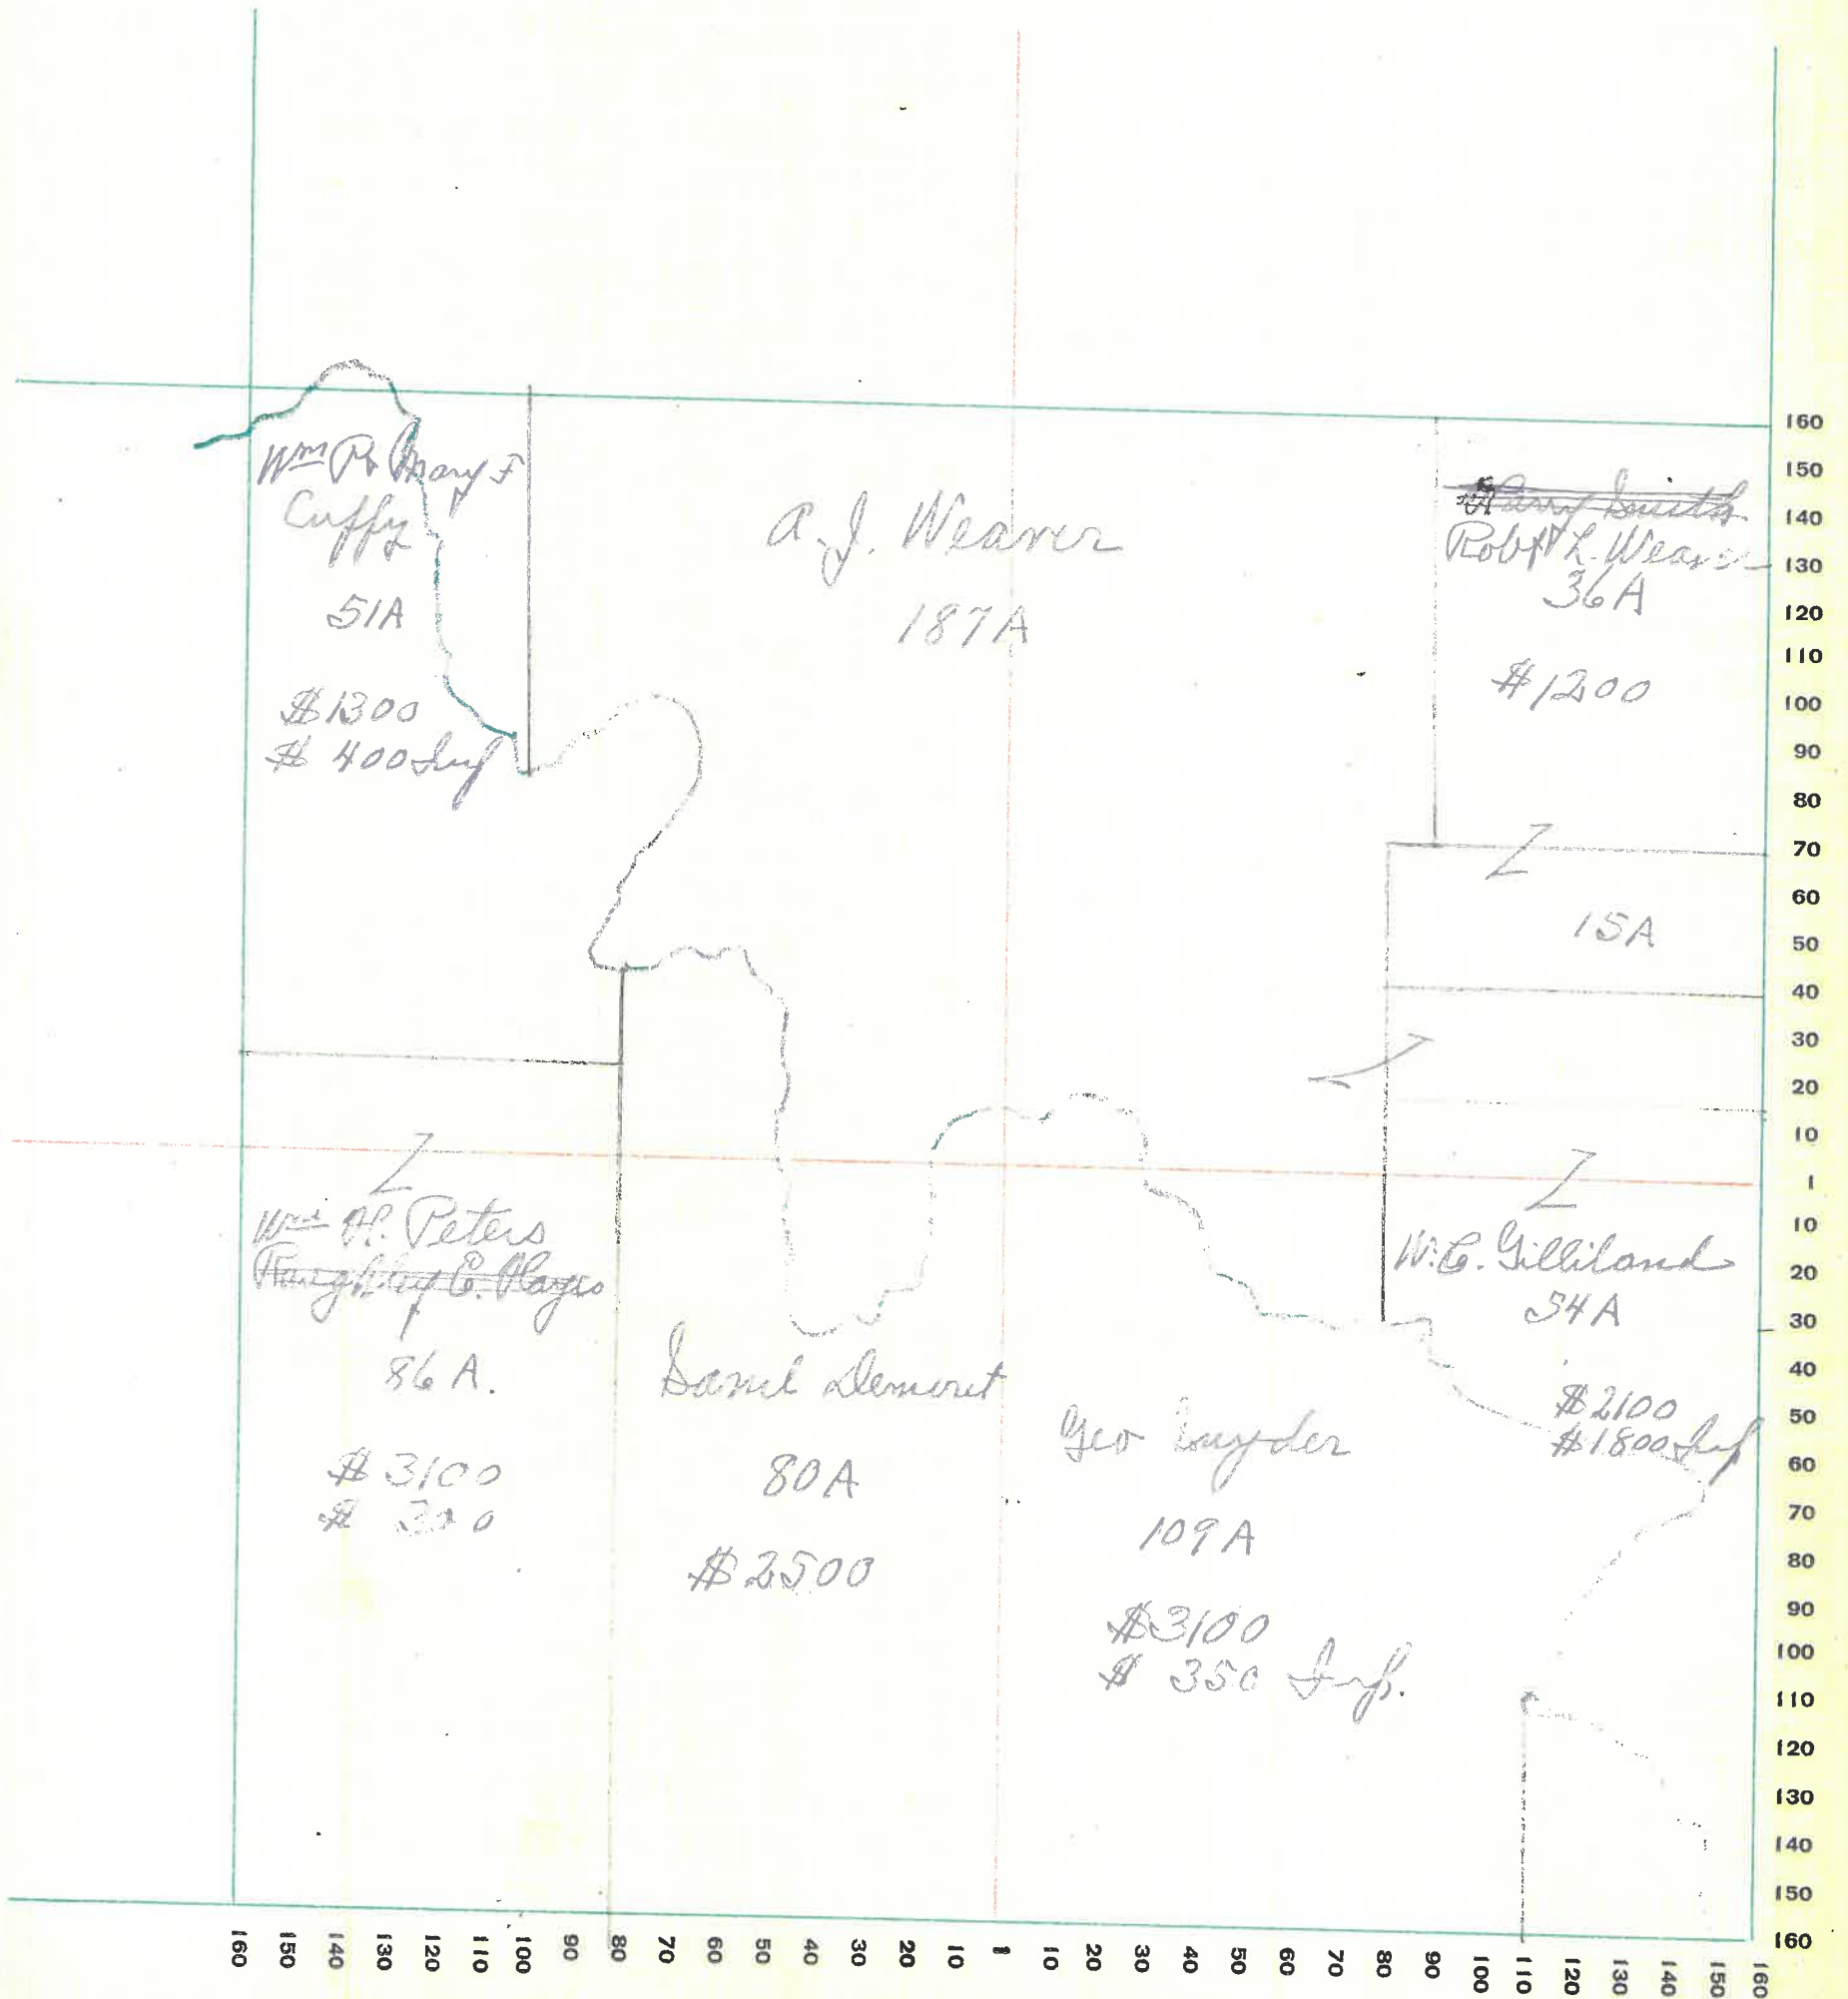 Wm P. & Mary F
Cuffy
51A
$1300
$ 400 Imp
A. J. Weaver
187A
Harry Smith
Robt L. Weaver
36A
$1200
Z
15A
Z
Z
Wm H. Peters
E. Hayes
86 A.
$3100
$ 300
Saml Demoret
80A
$2500
Geo Snyder
109A
$3100
$ 350 Imp.
W. C. Gilliland
54A
$2100
$1800 Imp
160
150
140
130
120
110
100
90
80
70
60
50
40
30
20
10
1
10
20
30
40
50
60
70
80
90
100
110
120
130
140
150
160
160 150 140 130 120 110 100 90 80 70 60 50 40 30 20 10 1 10 20 30 40 50 60 70 80 90 100 110 120 130 140 150 160